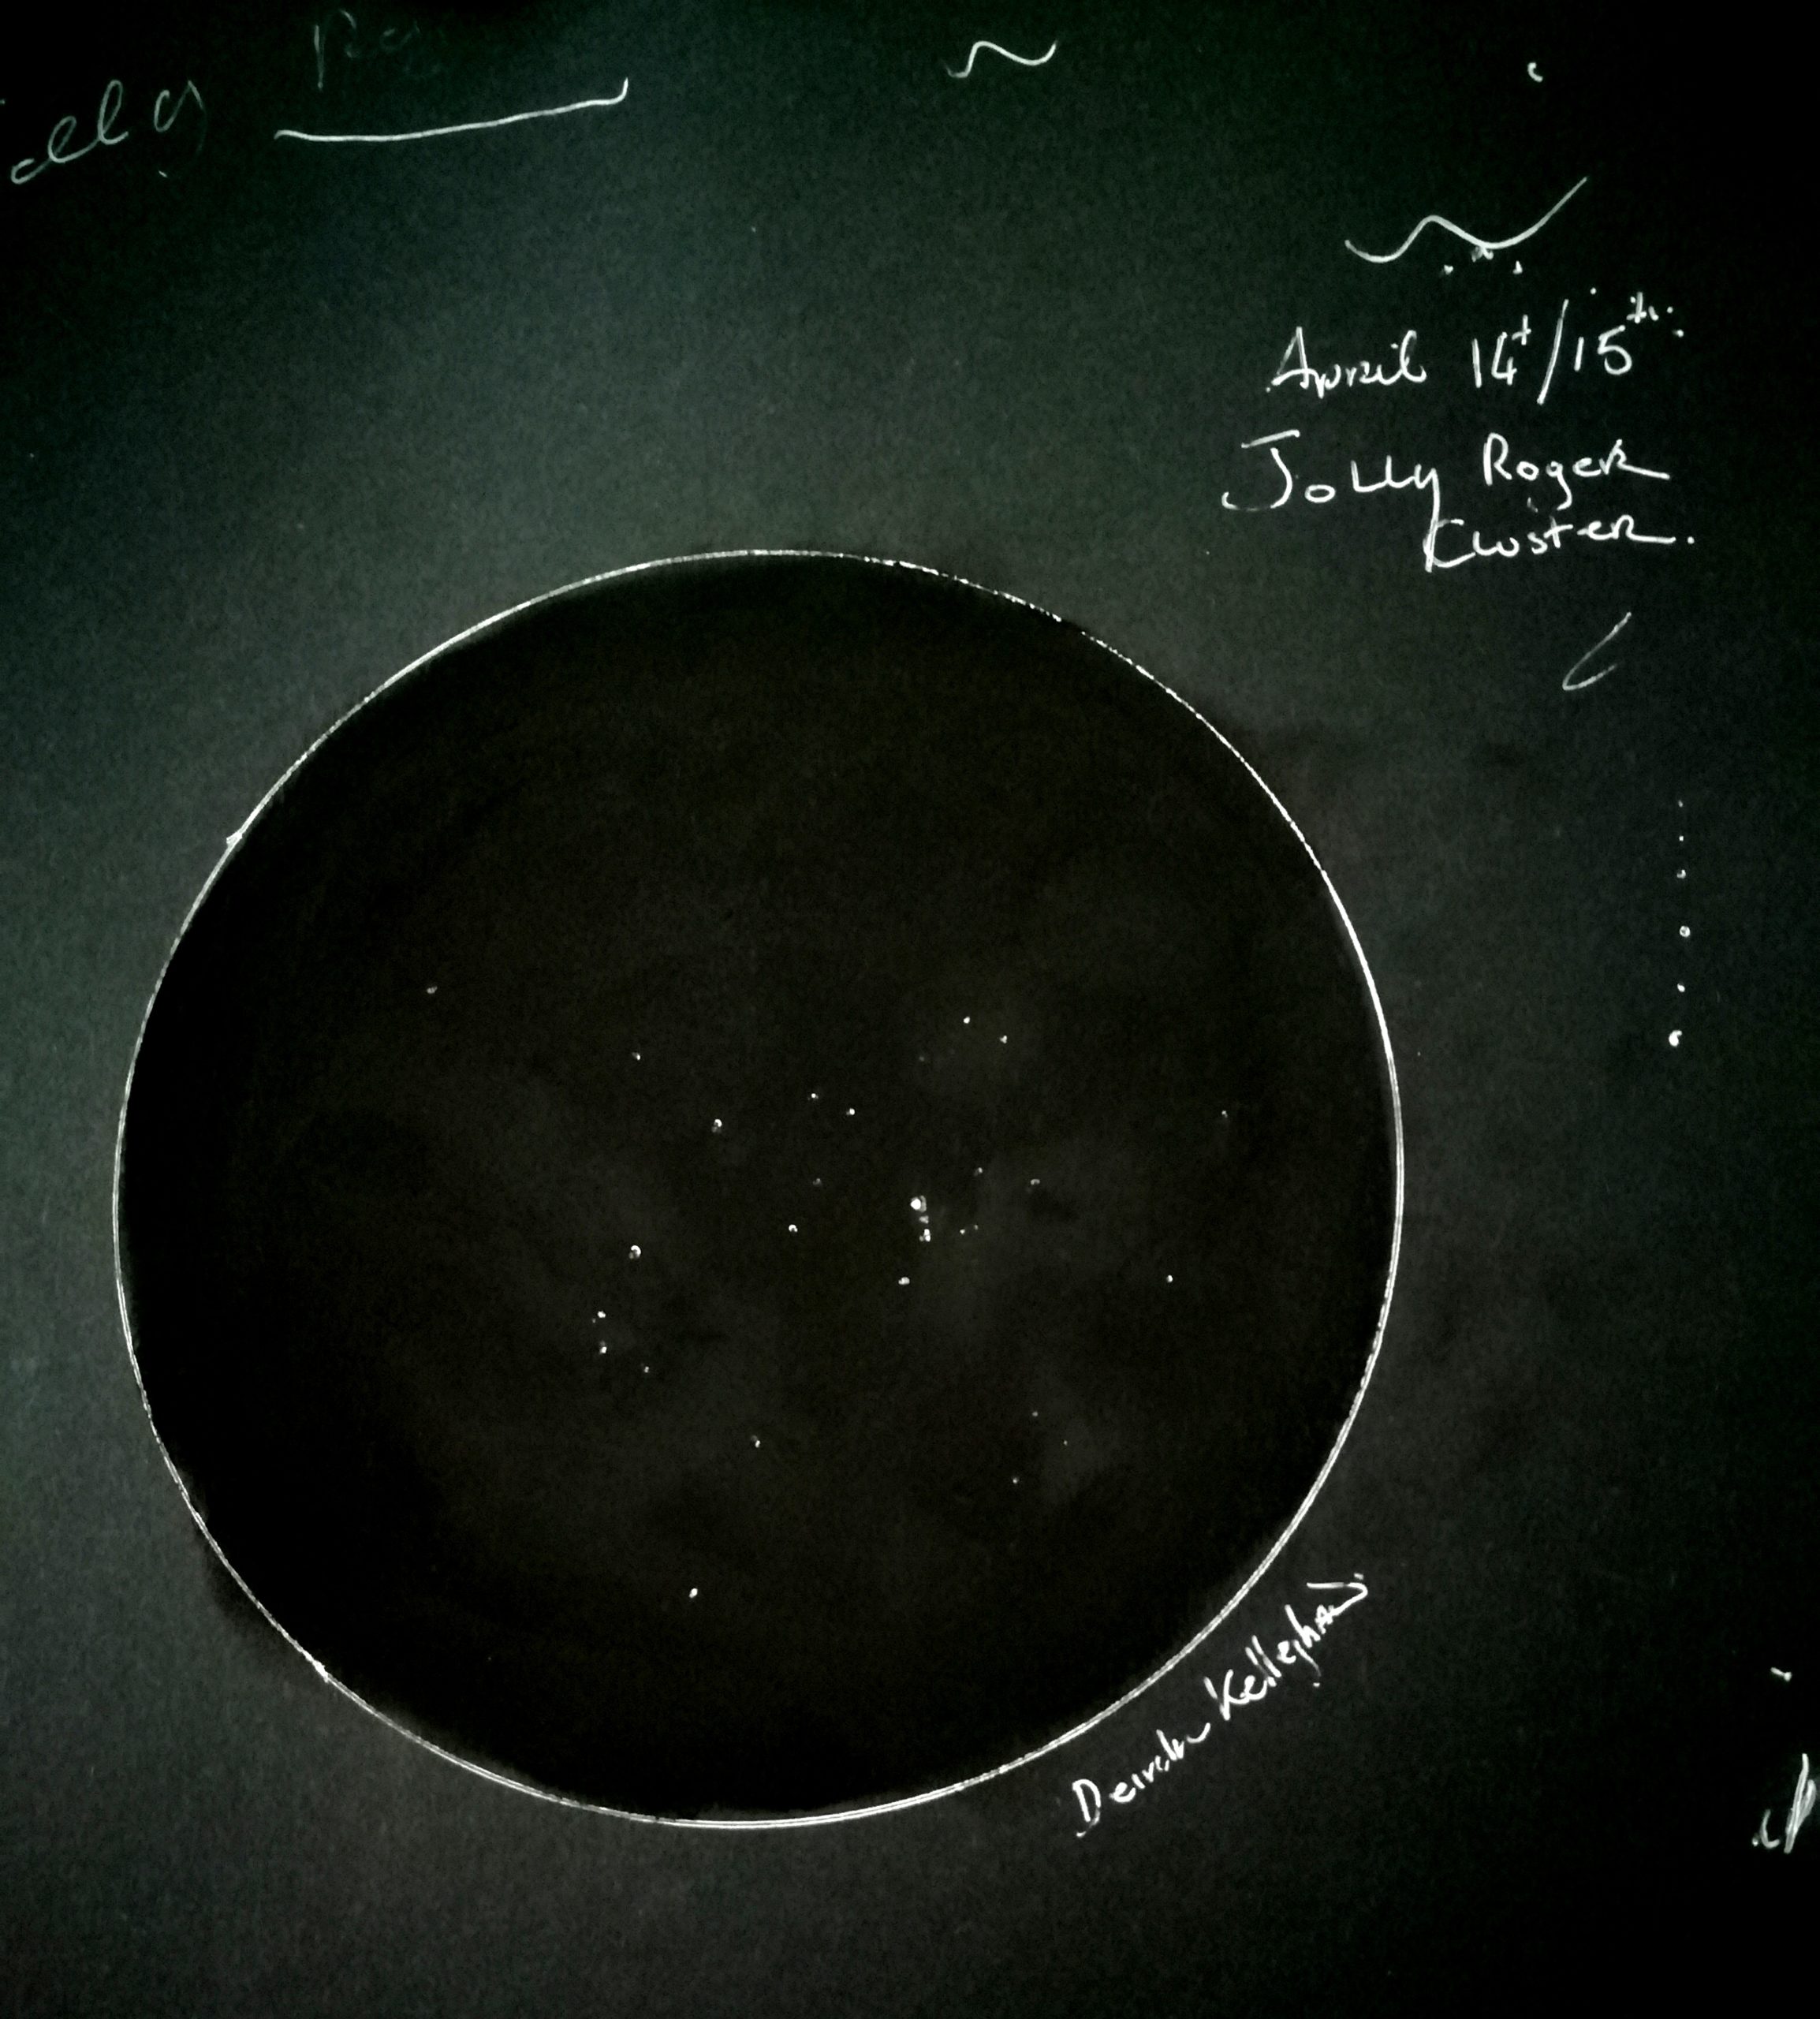 April 14t/15th
Jolly Roger
Cluster.
Deirdre Kelleghan